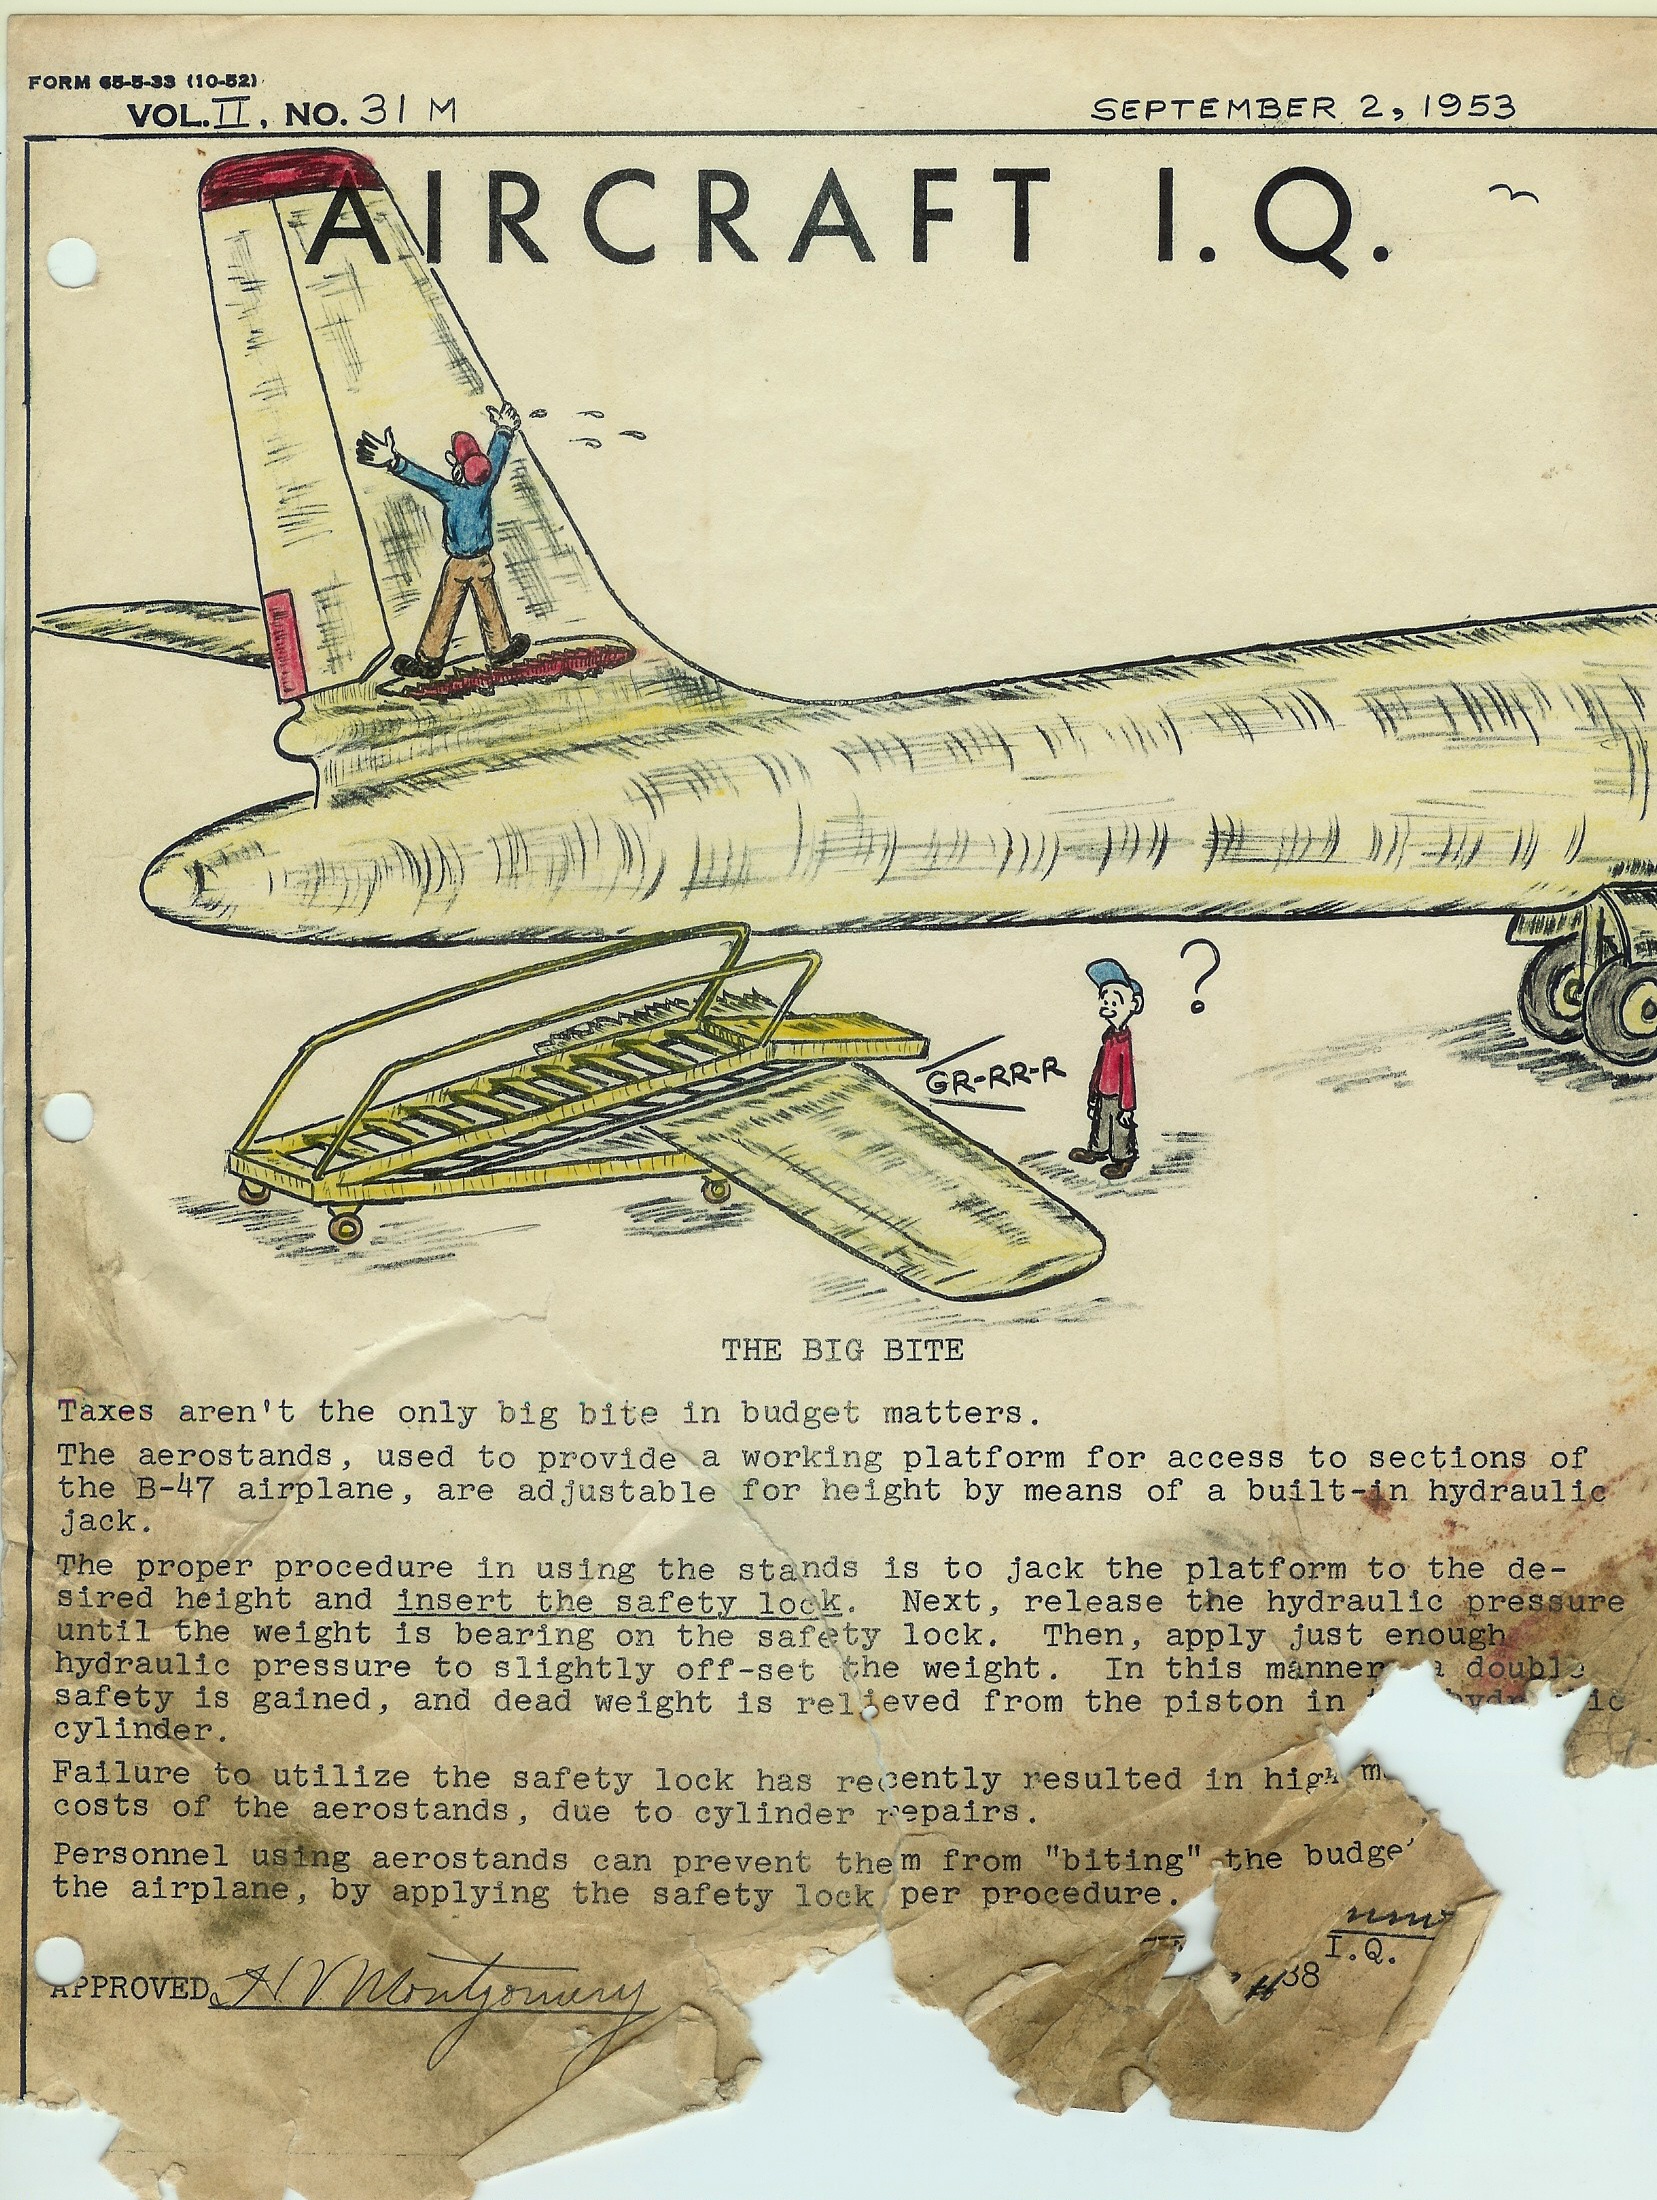 FORM 65-5-33 (10-52)
VOL. II, NO. 31 M
SEPTEMBER 2, 1953
AIRCRAFT I.Q.
?
GR-RR-R
THE BIG BITE
Taxes aren't the only big bite in budget matters.
The aerostands, used to provide a working platform for access to sections of
the B-47 airplane, are adjustable for height by means of a built-in hydraulic
jack.
The proper procedure in using the stands is to jack the platform to the de-
sired height and insert the safety lock. Next, release the hydraulic pressure
until the weight is bearing on the safety lock. Then, apply just enough
hydraulic pressure to slightly off-set the weight. In this manner a double
safety is gained, and dead weight is relieved from the piston in
cylinder.
Failure to utilize the safety lock has recently resulted in high
costs of the aerostands, due to cylinder repairs.
Personnel using aerostands can prevent them from "biting" the budge
the airplane, by applying the safety lock per procedure.
I.Q.
APPROVED H V Montgomery